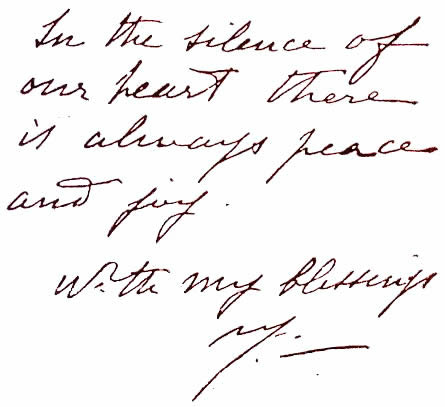 In the silence of
our heart there
is always peace
and joy.
With my blessings